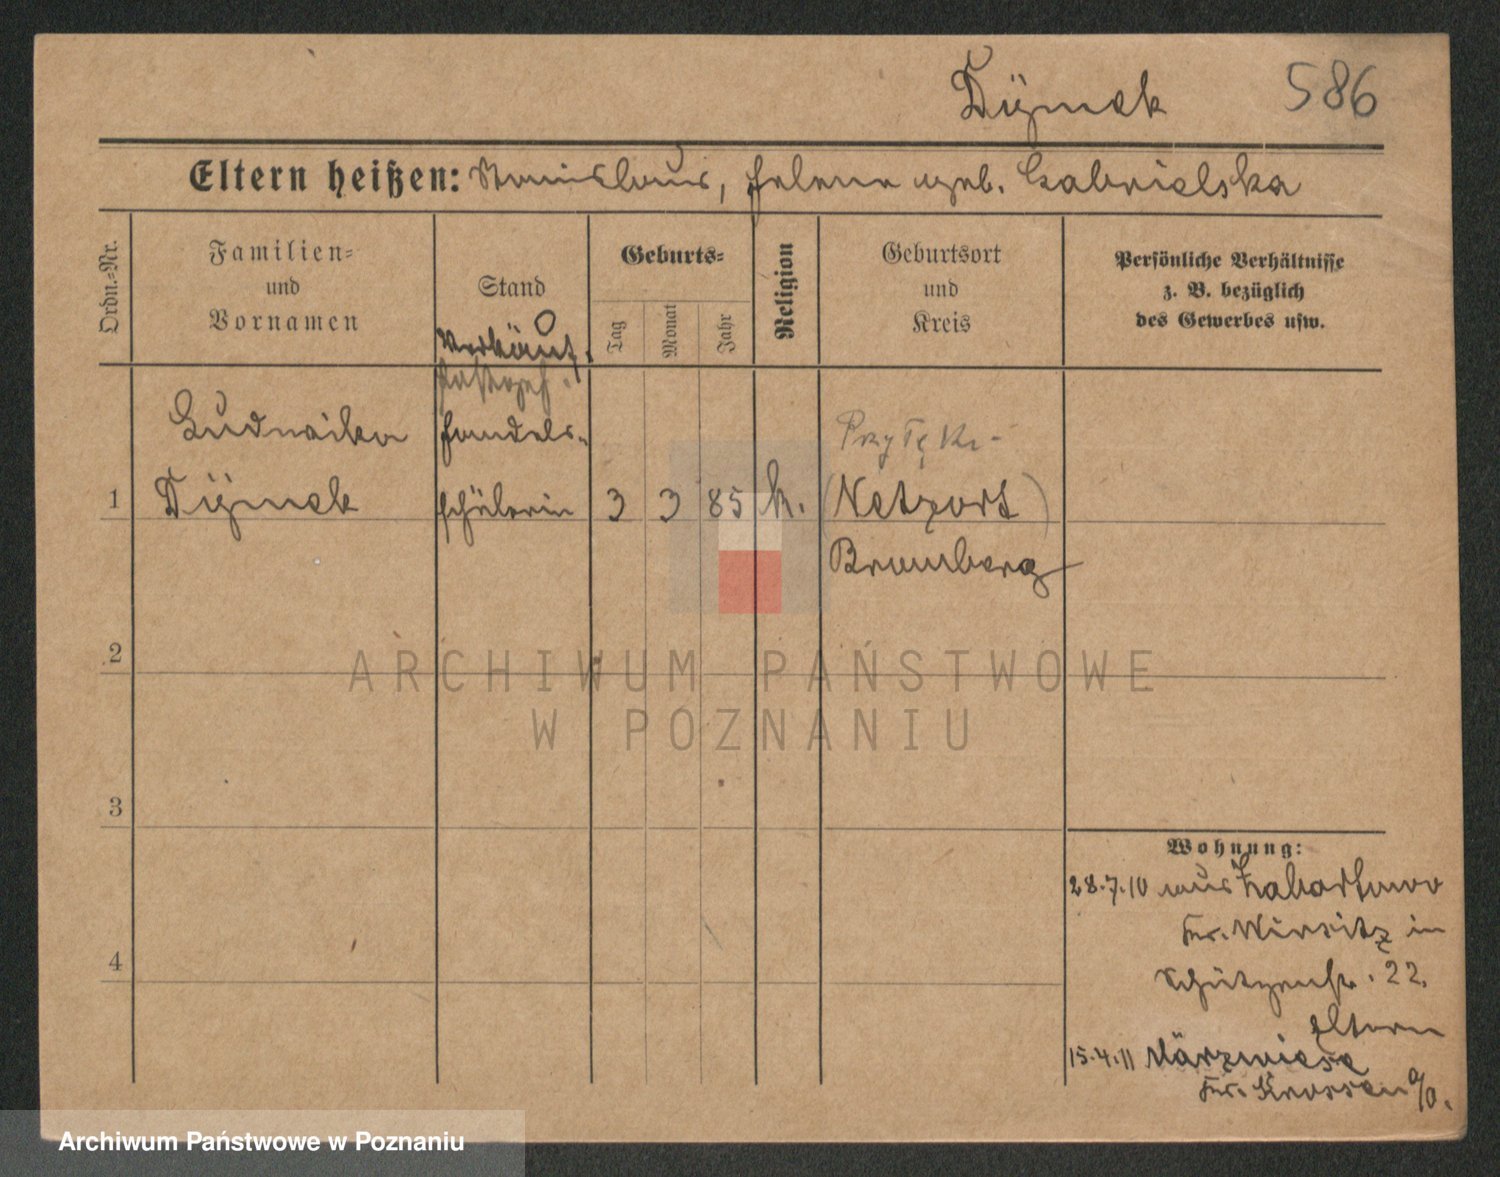 Dÿmek 586
Eltern heißen: Stanislaus, Helene geb. Gabrielska
Ordn.-Nr.
Familien-
und
Vornamen
Stand
Geburts-
Tag
Monat
Jahr
Religion
Geburtsort
und
Kreis
Persönliche Verhältnisse
z. B. bezüglich
des Gewerbes usw.
Verkäuf.
Ludwika
Handels-
Dÿmek
schülerin
1
3 3 85 k.
(Netzort)
Bromberg
2
ARCHIWUM PAŃSTWOWE
W POZNANIU
3
4
Wohnung:
28.7.10 aus Zabartowo
Kr. Wirsitz in
Schützenstr. 22.
Eltern
15.4.11 Märzwiese
Kr. Krossen a/O.
Archiwum Państwowe w Poznaniu